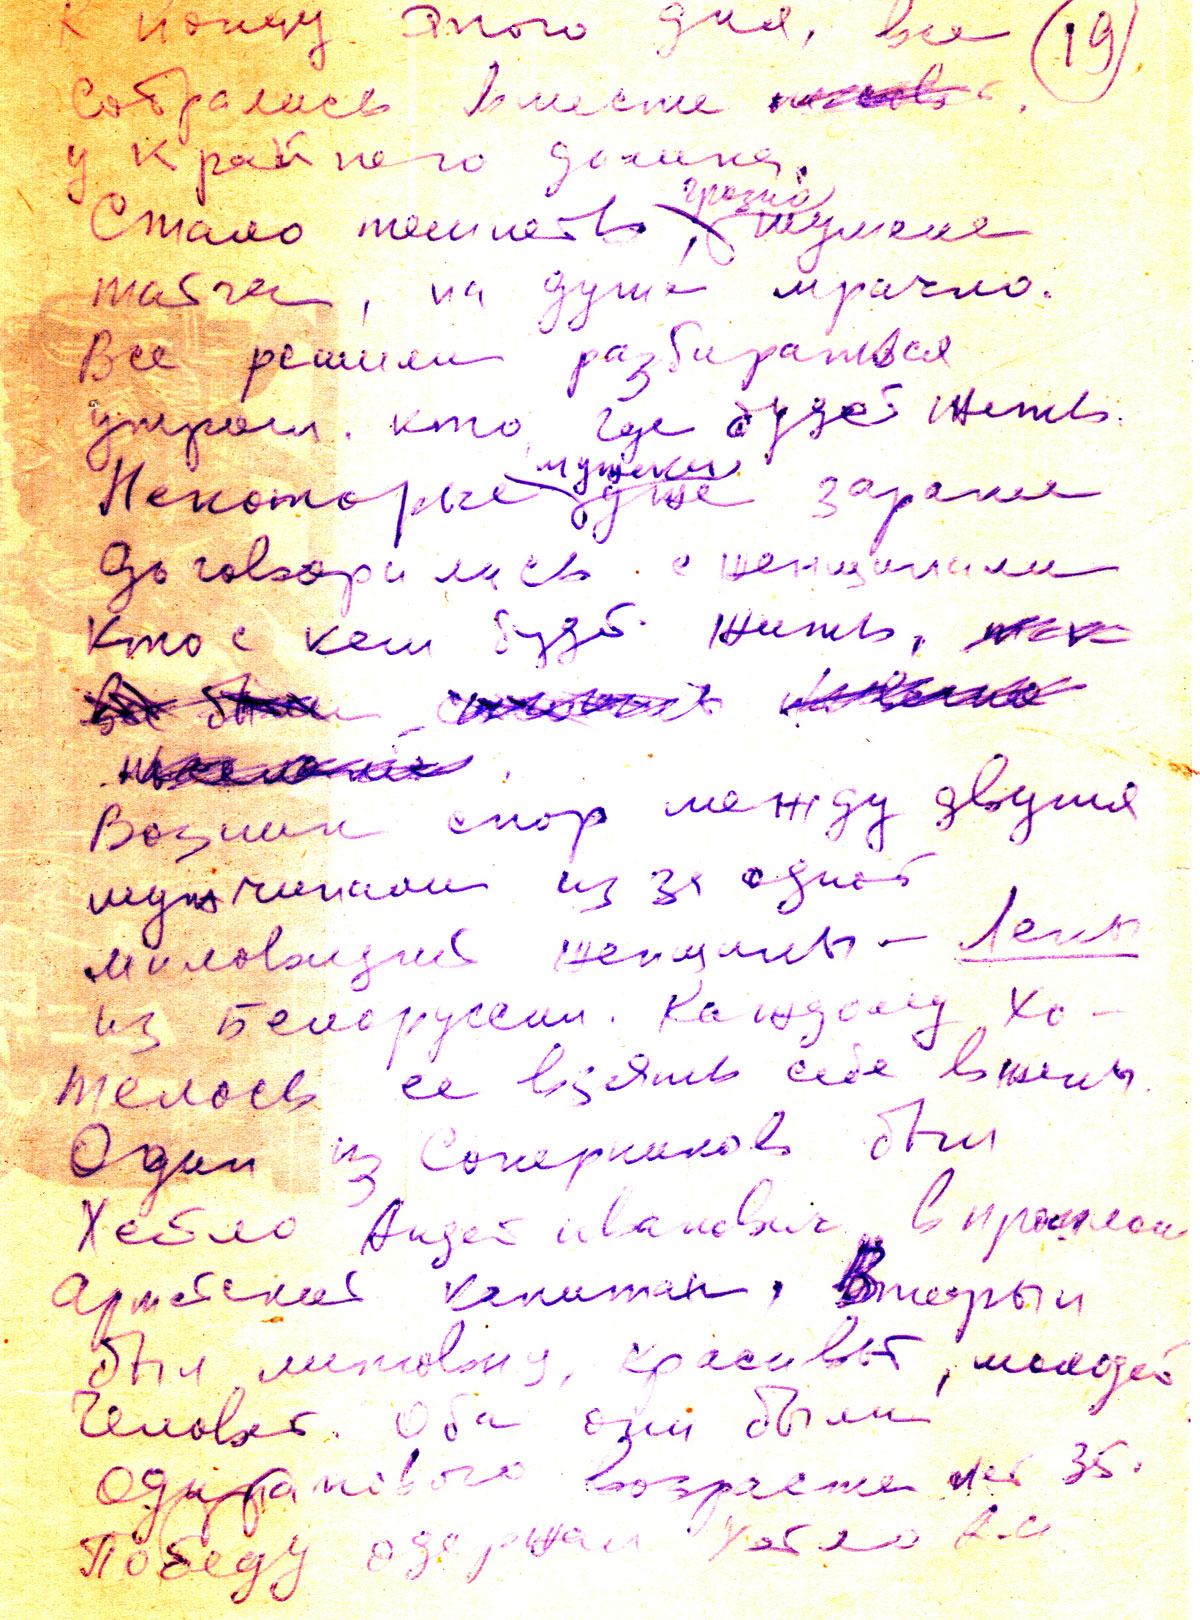 К концу этого дня, все (19)
собрались вместе
у крайнего домика.
Стало темнеть, грозно шумела
тайга, на душе мрачно.
Все решили разбираться
утром. кто, где будет жить.
Некоторые мужики уже заранее
договорились с женщинами
кто с кем будет жить,
Возник спор между двумя
мужчинами из за одной
миловидной женщины – Лены
из Белоруссии. Каждому хо-
телось ее взять себе в жены.
Один из соперников был
Хейло Андрей Иванович, в прошлом
Армейский капитан, Второй
был литовец, красивый, молодой
человек. Оба они были
одинакового возраста лет 35.
Победу одержал Хейло А.И